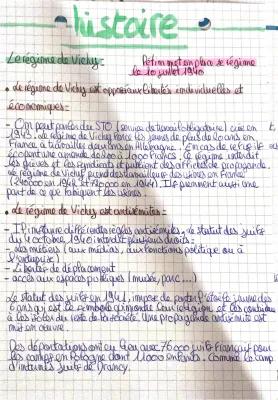 histoire
Le régime de Vichy : Pétain met en place ce régime
le 10 juillet 1940
• Le régime de Vichy est opposé aux libertés individuelles et
économiques :
- On peut parler du STO (service de travail obligatoire) créé en
1943. Le régime de Vichy force les jeunes de plus de 20 ans en
France à travailler deux ans en Allemagne. En cas de refus ils
écopent une amende de 200 à 1000 Francs. Ce régime interdit
les grèves et les syndicats et publient des affiches de propagande.
Le régime de Vichy prend des travailleurs des usines en France
(240000 en 1942 et 720000 en 1944). Ils prennent aussi une
part de ce que fabriquent les usines
• Le régime de Vichy est antisémite :
- Il instaure différentes règles antisémites. Le statut des juifs
du 4 octobre 1940 interdit plusieurs droits :
- des métiers (aux médias, aux fonctions politique ou à
l'entreprise)
- Libertés de déplacement
- accès aux espaces publiques (musée, parc...)
Le statut des juifs en 1941, impose de porter l'étoile jaune dès
6 ans qui est le symbole qui montre leur religion et les
à les isoler du reste de la société. Une propagande antisémite est
mit en œuvre.
Des déportations ont eu lieu avec 76000 juifs français pour
les camps en Pologne dont 11000 enfants. Comme le camp
d'internés juifs de Drancy.